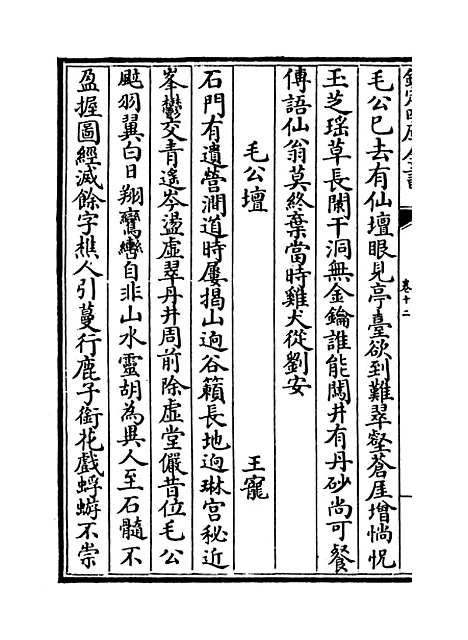 欽定四庫全書
卷十二
毛公已去有仙壇眼見亭臺欲到難翠壑蒼厓增惝怳
玉芝瑶草長闌干洞無金鑰誰能闥井有丹砂尚可餐
傳語仙翁莫終棄當時雞犬從劉安
毛公壇
王寵
石門有遺營澗道時屢揭山迥谷籟長地迥琳宫秘近
峯鬱交青遥岑盪虛翠丹井周前除虛堂儼昔位毛公
飈羽翼白日翔鸞轡自非山水靈胡為異人至石髓不
盈握圖經滅餘字樵人引蔓行鹿子銜花戲蜉蝣不崇